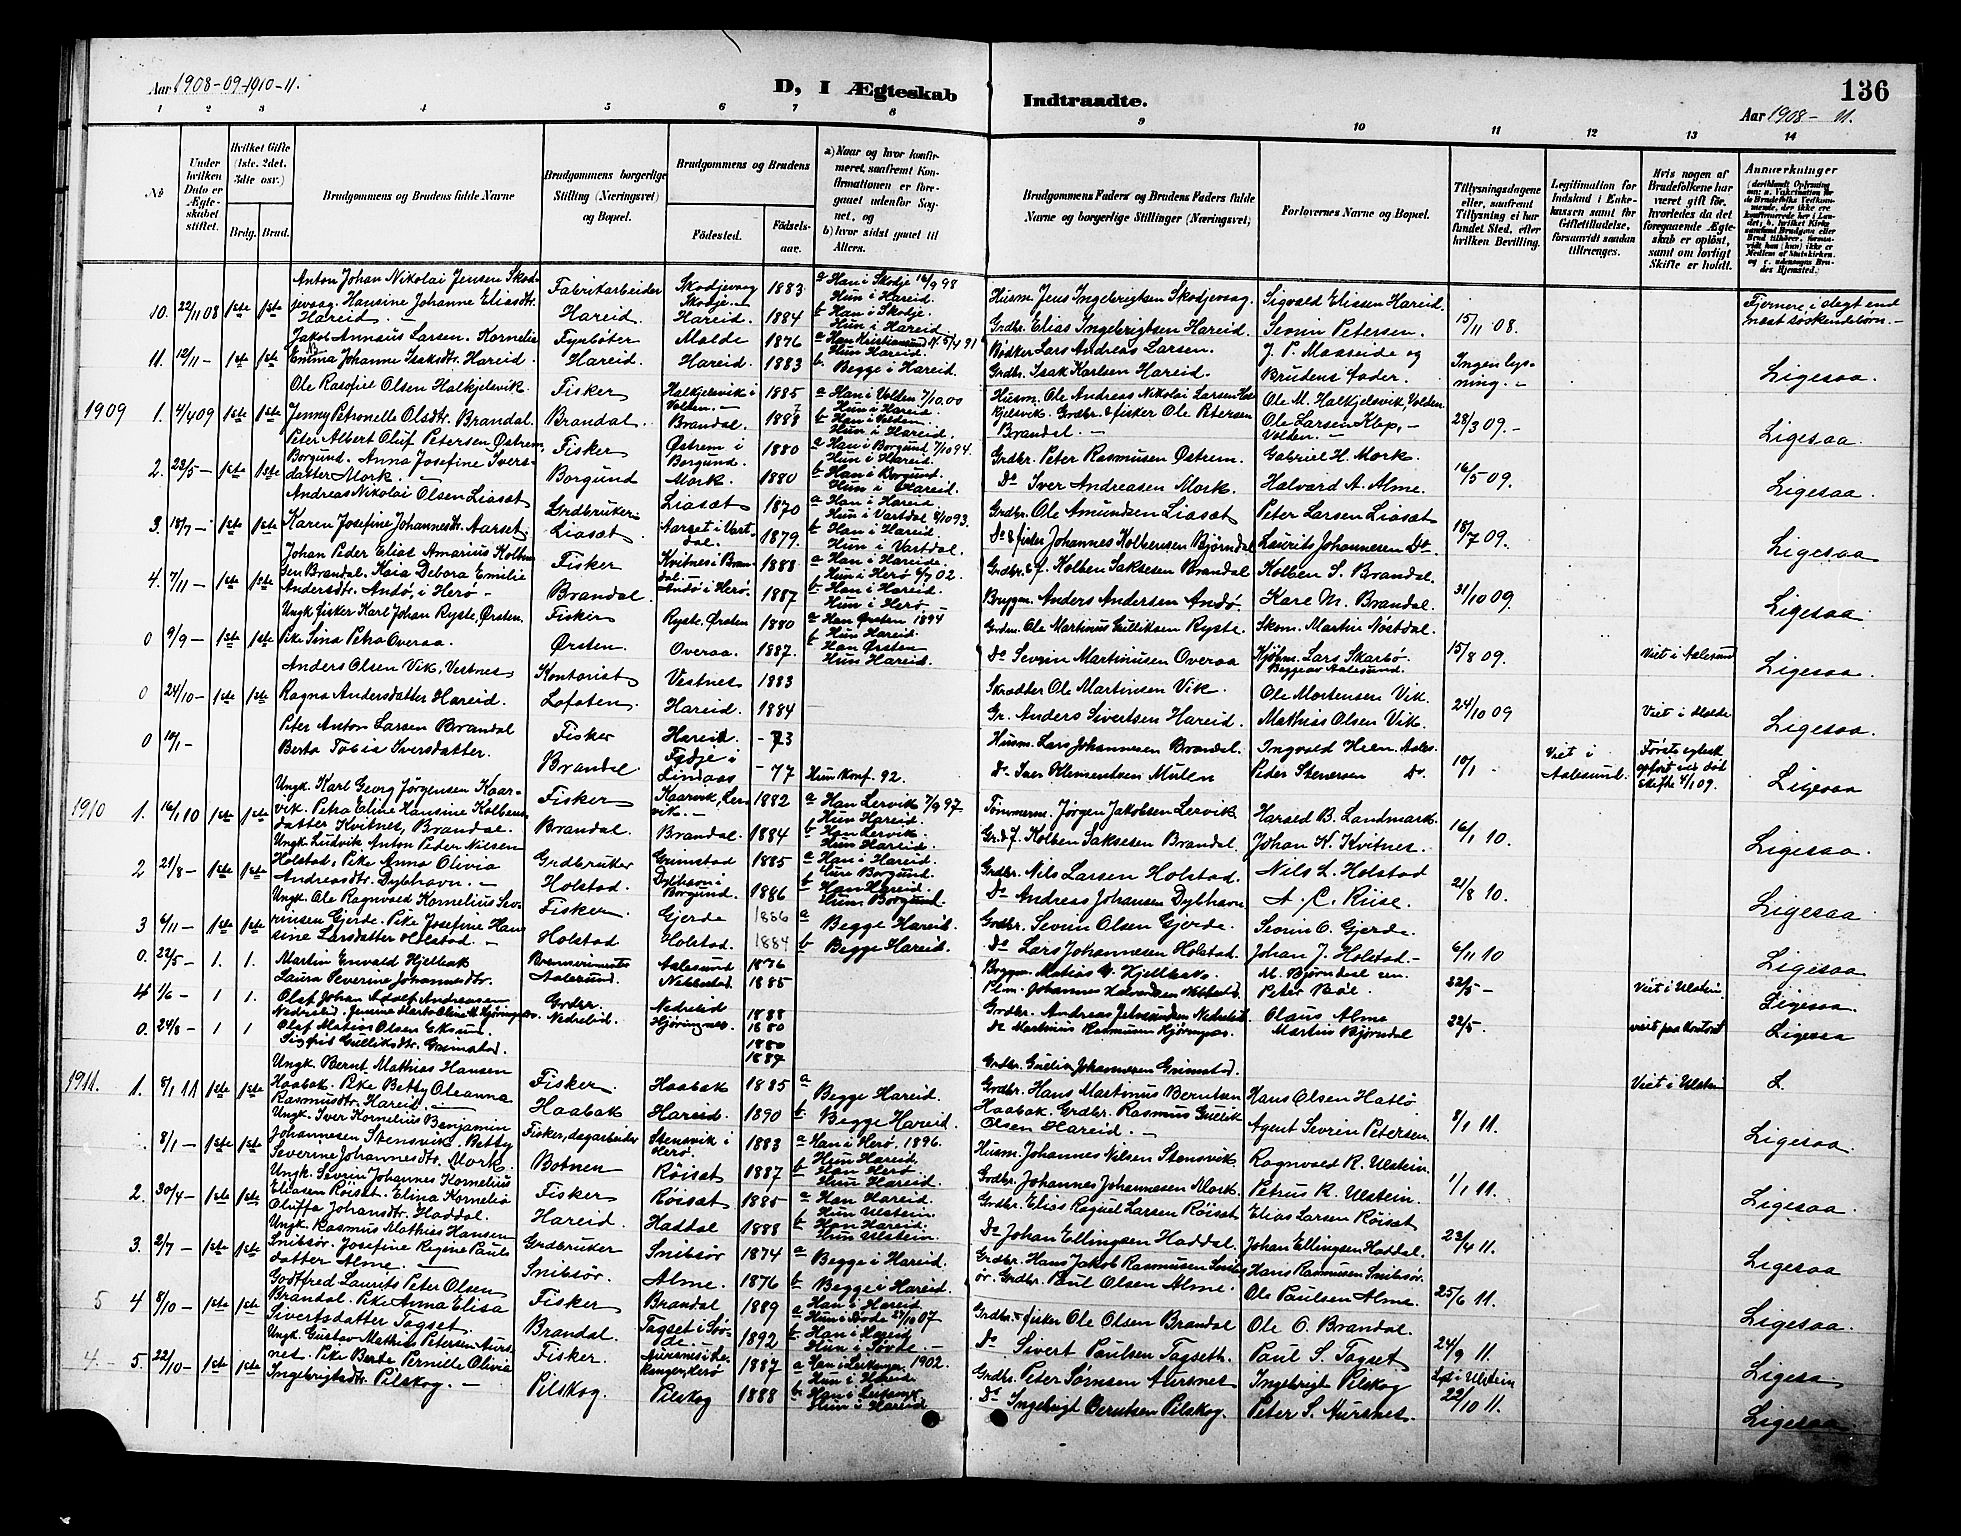 Aar 1908-09-1910-11.
D, I Ægteskab Indtraadte.
136
Aar 1908- 11.
1 2 3 4 5 6 7 8 9 10 11 12 13 14
No
Under hvilken Dato er Ægteskabet stiftet.
Hvilket Gifte (1ste, 2det, 3die osv.)
Brdg. Brud.
Brudgommens og Brudens fulde Navne
Brudgommens borgerlige Stilling (Næringsvei) og Bopæl.
Brudgommens og Brudens
Fødested. Fødselsaar.
a) Naar og hvor konfirmeret, saafremt Konfirmationen er foregaaet udenfor Sognet, og
b) hvor sidst gaaet til Alters.
Brudgommens Faders og Brudens Faders fulde Navne og borgerlige Stillinger (Næringsvei)
Forlovernes Navne og Bopæl.
Tillysningsdagene eller, saafremt Tillysning ei har fundet Sted, efter hvilken Bevilling.
Legitimation for Indskud i Enkekassen samt for Giftetilladelse, forsaavidt saadan tiltrænges.
Hvis nogen af Brudefolkene har været gift før, hvorledes da det foregaaende Ægteskab er opløst, samt om lovligt Skifte er holdt.
Anmærkninger
10. 22/11 08 1ste 1ste Anton Johan Nikolai Jensen Skodjevaag. Hansine Johanne Eliasdtr. Hareid. Fabrikarbeider Hareid. Skodjevaag Skodje. Hareid. 1883 1884 a Han i Skodje 16/9 98 Hun i Hareid. b Han i Skodje. Hun i Hareid. Husm. Jens Ingebrigtsen Skodjevaag. Grdbr. Elias Ingebrigtsen Hareid. Sigvald Eliesen Hareid. Sevrin Petersen. 15/11 08. Fjernere i slegt end næst søskendebørn.-
11. 12/11 - 1ste 1ste Jakob Annæus Larsen. Kornelie Emma Johanne Isaksdtr. Hareid. Fyrbøter Hareid. Molde Hareid. 1876 1883 Begge i Hareid. Bødker Lars Andreas Larsen. Grdbr. Isak Karlsen Hareid. J. P. Maaseide og Brudens fader. Ingen lysning.- Ligesaa.
1909 1. 4/4 09 1ste 1ste Ole Rasofiel Olsen Halkjelsvik Jenny Petronelle Olsdtr. Brandal. Fisker Brandal. Halkjelsvik i Volden.- Brandal. 1885 1888 a Han i Volden 7/10 00 Hun i Hareid. b Han i Volden. Hun i Hareid. Husm. Ole Andreas Nikolai Larsen Halkjelsvik. Grdbr. & fisker Ole Petersen Brandal.- Ole M. Halkjelsvik, Volden Ole Larsen Klep,- Volden.- 28/3 09.- Ligesaa.
2. 23/5 - 1ste 1ste Peter Albert Oluf Petersen Østrem, Borgund. Anna Josefine Iversdatter Mork. - Fisker Borgund Østrem i Borgund. Mork. 1880 1880 a Han i Borgund 7/10 94. Hun i Hareid. b Han i Borgund. Hun i Hareid. Grdbr. Peter Rasmusen Østrem. Do Iver Andreasen Mork. Gabriel H. Mork. Halvard A. Alme. 16/5 09. Ligesaa.
3. 18/7 - 1ste 1ste Andreas Nikolai Olsen Liasæt Karen Josefine Johannesdtr. Aarset. Grdbruker Liasæt. Liasæt Aarset i Vartdal. 1870 1879. a Han i Hareid. Hun i Vartdal b Han i Hareid. Hun i Vartdal. Grdbr. Ole Amundsen Liasæt Do & fisker Johannes Kolbensen Bjørndal Peter Larsen Liasæt Laurits Johannesen Do 18/7 09. Ligesaa
4. 7/11 - 1ste 1ste Johan Peder Elias Amarius Kolbensen Brandal. Kaia Debora Emilie Andersdtr. Andø, i Herø - Fisker Brandal. Kvitnes i Brandal.- Andø i Herø. 1888 1887 a Han i Hareide. Hun i Herø 6/7 02. b Han i Hareid. Hun i Herø.- Grdbr. & f. Kolben Saksesen Brandal Bruggm. Anders Andersen Andø. Kolben S. Brandal. Kare M. Brandal. 31/10 09. Ligesaa.
0 9/9 - 1ste 1ste Ungk. fisker Karl Johan Ryste, Ørsten. Pike Sina Petra Overaa. Fisker Ørsten. Ryste, Ørsten Overaa. 1880 1887. a Han Ørsten 1894 Hun Hareid. b Han Ørsten Hun Hareid. Grdm. Ole Martinus Gulliksen Ryste. Do Sevrin Martinusen Overaa Skom. Martin Nostdal. Kjøbm. Lars Skarbø. Begge av Aalesund. 15/8 09. Viet i Aalesund Ligesaa.
0 24/10 - 1ste 1ste Anders Olsen Vik, Vestnes Ragna Andersdatter Hareid. Kontorist Lofoten. Vestnes Hareid. 1883 1884 Skrædder Ole Martinsen Vik. Gr. Anders Sivertsen Hareid. Ole Mortensen Vik. Mathias Olsen Vik. 24/10 09 Viet i Molde Ligesaa.
0 10/1 - Peter Anton Larsen Brandal Berta Tobia Iversdatter. Fisker Brandal. Hareid. Fedje i Lindaas -73 -77 Hun konf. 92. Husm. Lars Johannesen Brandal. Do Iver Klementsen Mulen Ingvald Heen, Aales. Peder Stenersen Do 10/1 - Viet i Aalesund. Første egtesk. opløst ved død Skifte 4/1 09. Ligesaa
1910 1. 16/1 10 1ste 1ste Ungk. Karl Georg Jørgensen Kaarvik. Petra Eline Hansine Kolbensdatter Kvitnes, Brandal. Fisker Brandal. Kaarvik, Lervik.- Brandal. 1882 1884 a Han Lervik 7/9 97. Hun Hareid. b Han Lervik. Hun Hareid. Tømmerm. Jørgen Jakobsen Lervik. Gr. & f. Kolben Saksesen Brandal. Harald B. Landmark. Johan K. Kvitnes. 16/1 10. Ligesaa.
2 21/8 - 1ste 1ste Ungk. Ludvik Anton Peder Nilsen Holstad, Pike Anna Olivia Andreasdtr. Dybhavn.- Grdbruker Holstad. Grimstad Dybhavn i Borgund. 1885 1886 a Han i Hareid. Hun Borgund. b Han Hareid. Hun Borgund. Grdbr. Nils Larsen Holstad Do Andreas Johansen Dybhavn Nils L. Holstad A. C. Riise. 21/8 10. Ligesaa
3 6/11 - 1ste 1ste Ungk. Ole Ragnvald Kornelius Sevrinsen Gjerde. Pike Josefine Hansine Larsdatter Holstad. - Fisker. Holstad Gjerde Holstad. 1886 1884 a Begge Hareid. b Begge Hareid. Grdbr. Sevrin Olsen Gjerde. Do Lars Johannesen Holstad. Sevrin O. Gjerde. Johan J. Holstad - 6/11 10 Ligesaa
0. 22/5 - 1. 1. Martin Envald Hjelbak Laura Severine Johannesdtr. Aalesund. Aalesund 1876 1885 M. Bjørndal sen. Peter Bøe. 22/5 - Viet i Ulstein. Ligesaa
4 1/6 - 1 1. Olaf Johan Adolf Andreasen Nedrelid. Grdbr. Nedrelid. Nedrelid Hjøringnes 1888 1880 Do Martinus Rasmusen Hjøringnes. Olaus Alme Martin Bjørndal 22/5. viet paa kontoret Ligesaa
0. 24/8 - 1 1 Olaf Matias Olsen Eksund. Sigfrid Gulliksdtr. Grimstad. 1880 1884 Grdbr. Gullik Johannesen Grimstad. Viet i Ulstein L.
1911. 1. 8/1 11 1ste 1ste Ungk. Bernt Mathias Hansen Haabak. Pike Betty Oleanna Rasmusdtr. Hareid. Fisker. Haabak Haabak Hareid. 1885 1890 a Begge Hareid. b. Begge Hareid. Grdbr. Hans Martinus Berntsen Haabak. Grdbr. Rasmus Gullik Olsen Hareid. - Hans Olsen Hatlø. Agent Sevrin Petersen 8/1 11. Ligesaa.
8/1 - 1ste 1ste Ungk. Iver Kornelius Benjamin Johannesen Stensvik. Betty Severine Johannesdtr. Mork. Fisker, dagarbeider Botnen Stensvik i Herø. Røisæt 1883 1887 a Han i Herø. 1896. Hun Hareid. b Han Herø. Hun Hareid. Husm. Johannes Nilsen Stensvik Grdbr. Johannes Johannesen Mork. Ragnvald R. Ulstein. Petrus R. Ulstein. 1/1 11. Ligesaa.
2. 30/4 - 1ste 1ste Ungk. Sevrin Johannes Kornelius Eliasen Røisæt. Elina Kornelia Oluffa Johansdtr. Haddal. Fisker Hareid. Røisæt Haddal 1885 1888 a Han Hareid. Hun Ulstein. b Han Hareid. Hun Ulstein. Grdbr. Elias Raguel Larsen Røisæt Do Johan Ellingsen Haddal. Elias Larsen Røisæt Johan Ellingsen Haddal. 23/4 11. Ligesaa
3. 2/7 - 1ste 1ste Ungk. Rasmus Mathias Hansen Snibsør. Josefine Regine Paulsdatter Alme. - Grdbruker Snibsør. Snibsør Alme. 1874 1876 a Begge i Hareid. b Begge i Hareid. Grdbr. Hans Jakob Rasmusen Snibsør. Grdbr. Paul Olsen Alme. Hans Rasmusen Snibsør. Ole Paulsen Alme. 25/6 11. Ligesaa.
5 4 8/10 - 1ste 1ste Godtfred Laurits Peter Olsen Brandal. Pike Anna Elisa Sivertsdatter Tagset. Fisker Brandal. Brandal Tagset i Søvde.- 1889 1892 a Han i Hareid. Hun i Søvde 27/10 07 b Han i Hareid Hun i Søvde.- Grdbr. & fisker Ole Olsen Brandal Do Sivert Paulsen Tagseth. Ole O. Brandal. Paul S. Tagset 24/9 11. Ligesaa
4- 5. 22/10 - 1ste 1ste Ungk. Gustav Mathias Petersen Aursnes. Pike Berte Pernille Olivia Ingebrigtsdtr. Pilskog. - Fisker. Pilskog. Pilskog 1887 1888 a Han i Leikanger 1902. Hun i Hareid b Hun i Hareid Grdbr. Peter Sørnsen Aursnes Do Ingebrigt Berntsen Pilskog. Ingebrigt Pilskog Peter S. Aursnes. Lyst i Ulstein 22/10 11. Ligesaa